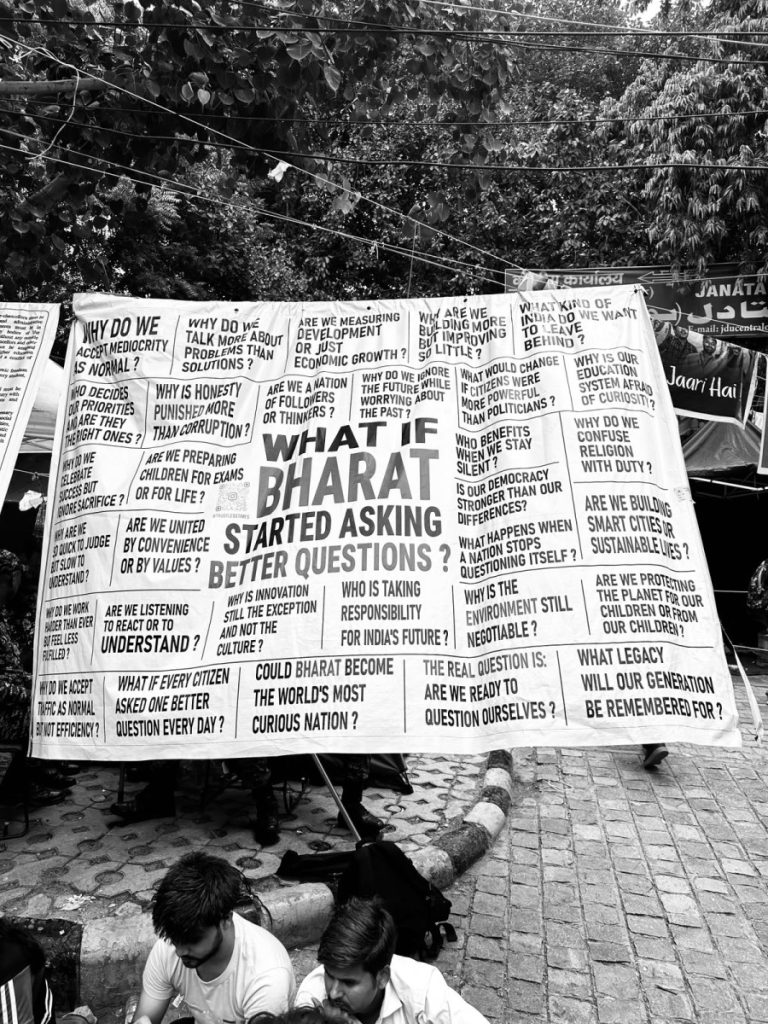 WHY DO WE
ACCEPT MEDIOCRITY
AS NORMAL ?
WHY DO WE
TALK MORE ABOUT
PROBLEMS THAN
SOLUTIONS ?
ARE WE MEASURING
DEVELOPMENT
OR JUST
ECONOMIC GROWTH ?
WHY ARE WE
BUILDING MORE
BUT IMPROVING
SO LITTLE ?
WHAT KIND OF
INDIA DO WE WANT
TO LEAVE
BEHIND ?
WHO DECIDES
OUR PRIORITIES
AND ARE THEY
THE RIGHT ONES ?
WHY IS HONESTY
PUNISHED MORE
THAN CORRUPTION ?
ARE WE A NATION
OF FOLLOWERS
OR THINKERS ?
WHY DO WE IGNORE
THE FUTURE WHILE
WORRYING ABOUT
THE PAST ?
WHAT WOULD CHANGE
IF CITIZENS WERE
MORE POWERFUL
THAN POLITICIANS ?
WHY IS OUR
EDUCATION
SYSTEM AFRAID
OF CURIOSITY ?
WHY DO WE
CELEBRATE
SUCCESS BUT
IGNORE SACRIFICE ?
ARE WE PREPARING
CHILDREN FOR EXAMS
OR FOR LIFE ?
WHAT IF
BHARAT
STARTED ASKING
BETTER QUESTIONS ?
WHO BENEFITS
WHEN WE STAY
SILENT ?
WHY DO WE
CONFUSE
RELIGION
WITH DUTY ?
IS OUR DEMOCRACY
STRONGER THAN OUR
DIFFERENCES?
WHY ARE WE
SO QUICK TO JUDGE
BUT SLOW TO
UNDERSTAND ?
ARE WE UNITED
BY CONVENIENCE
OR BY VALUES ?
WHAT HAPPENS WHEN
A NATION STOPS
QUESTIONING ITSELF ?
ARE WE BUILDING
SMART CITIES OR
SUSTAINABLE LIVES ?
WHY DO WE WORK
HARDER THAN EVER
BUT FEEL LESS
FULFILLED ?
ARE WE LISTENING
TO REACT OR TO
UNDERSTAND ?
WHY IS INNOVATION
STILL THE EXCEPTION
AND NOT THE
CULTURE ?
WHO IS TAKING
RESPONSIBILITY
FOR INDIA'S FUTURE ?
WHY IS THE
ENVIRONMENT STILL
NEGOTIABLE ?
ARE WE PROTECTING
THE PLANET FOR OUR
CHILDREN OR FROM
OUR CHILDREN ?
WHY DO WE ACCEPT
TRAFFIC AS NORMAL
BUT NOT EFFICIENCY ?
WHAT IF EVERY CITIZEN
ASKED ONE BETTER
QUESTION EVERY DAY ?
COULD BHARAT BECOME
THE WORLD'S MOST
CURIOUS NATION ?
THE REAL QUESTION IS:
ARE WE READY TO
QUESTION OURSELVES ?
WHAT LEGACY
WILL OUR GENERATION
BE REMEMBERED FOR ?
कार्यालय
JANATA
E-mail: jducentral
Jaari Hai